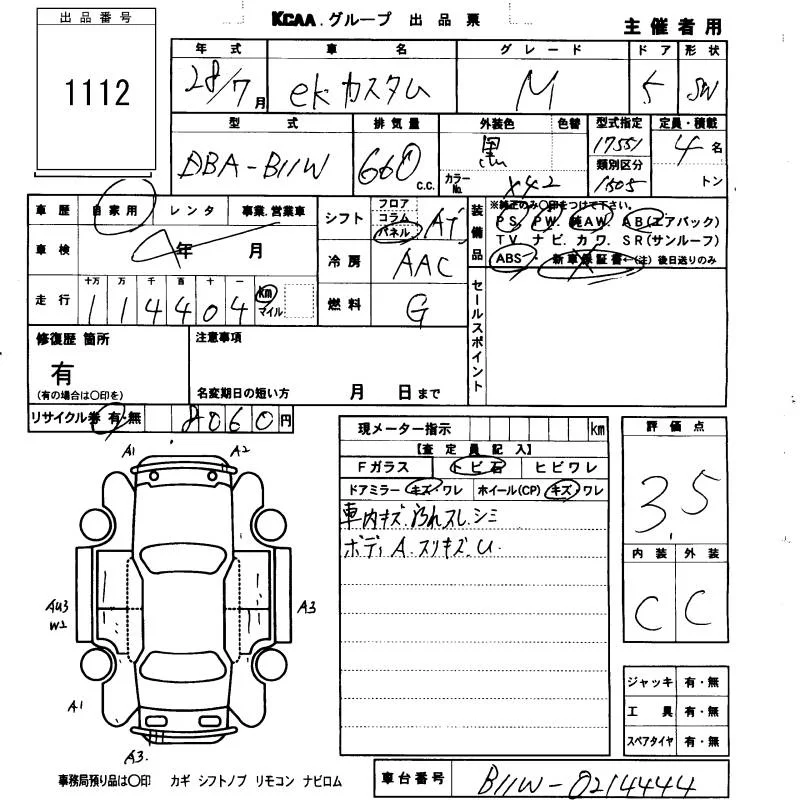 出品番号
1112
KCAA.グループ 出品票
主催者用
年式 車名 グレード ドア 形状
28/7月 ekカスタム M 5 SW
型式 排気量 外装色 色替 型式指定 定員・積載
DBA-B11W 660 C.C. 黒 17551 4名
カラーNo. X42 類別区分 1505 トン
車歴 自家用 レンタ 事業.営業車
シフト フロア コラム パネル AT
装備品 ※純正のみ〇印をつけて下さい。
PS. PW. 純AW. AB(エアバック)
TV ナビ. カワ. SR(サンルーフ)
ABS・新車保証書←(注)後日送りのみ
車検 年 月
冷房 AAC
走行 十万 万 千 百 十 一
114404 km マイル
燃料 G
セールスポイント
修復歴 箇所
有
(有の場合は〇印を)
注意事項
名変期日の短い方 月 日まで
リサイクル券 有・無 8060円
現メーター指示 km
【査定員記入】
Fガラス トビ石 ヒビワレ
ドアミラー キズ・ワレ ホイール(CP) キズ・ワレ
車内キズ.汚れスレ.シミ
ボディA.スリキズ.U.
評価点
3.5
内装 外装
C C
A1 A2
AU3
W2
A3
A1
A3.
ジャッキ 有・無
工具 有・無
スペアタイヤ 有・無
事務局預り品は〇印 カギ シフトノブ リモコン ナビロム
車台番号 B11W-0214444